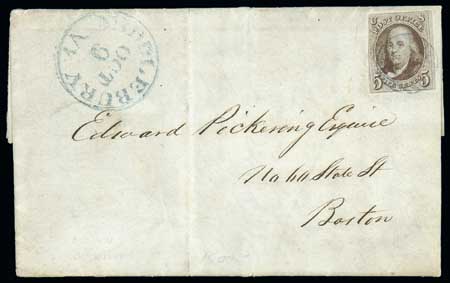 MIDDLEBURY Vt.
OCT
9
POST OFFICE
5 FIVE CENTS 5
Edward Pickering Esquire
No 60 State St
Boston